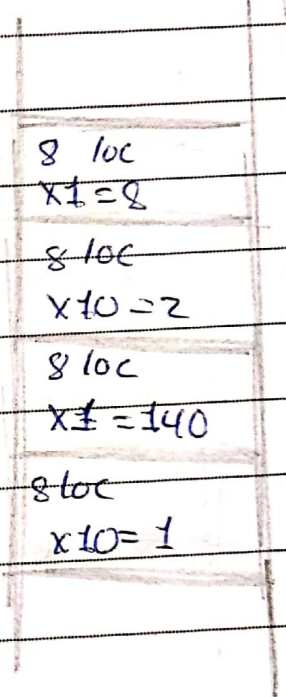 8 loc
x1=8
8 loc
x10=2
8 loc
x1=140
8 loc
x10=1